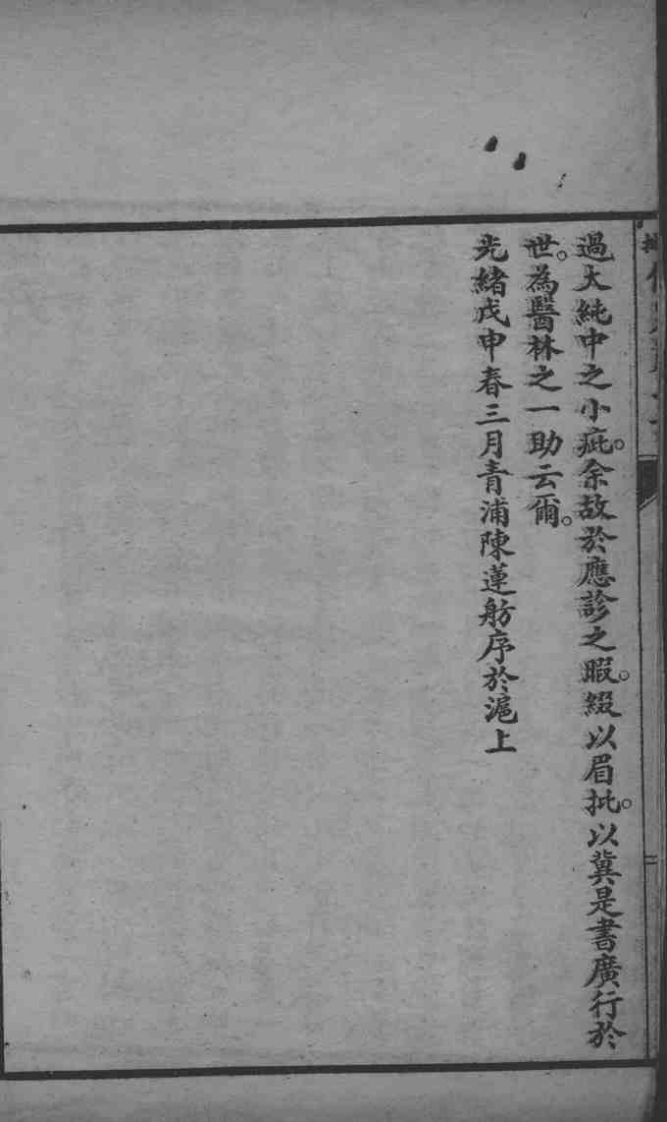 過大純中之小疵。余故於應診之暇。綴以眉批。以冀是書廣行於
世。為醫林之一助云爾。
光緒戊申春三月青浦陳蓮舫序於滬上